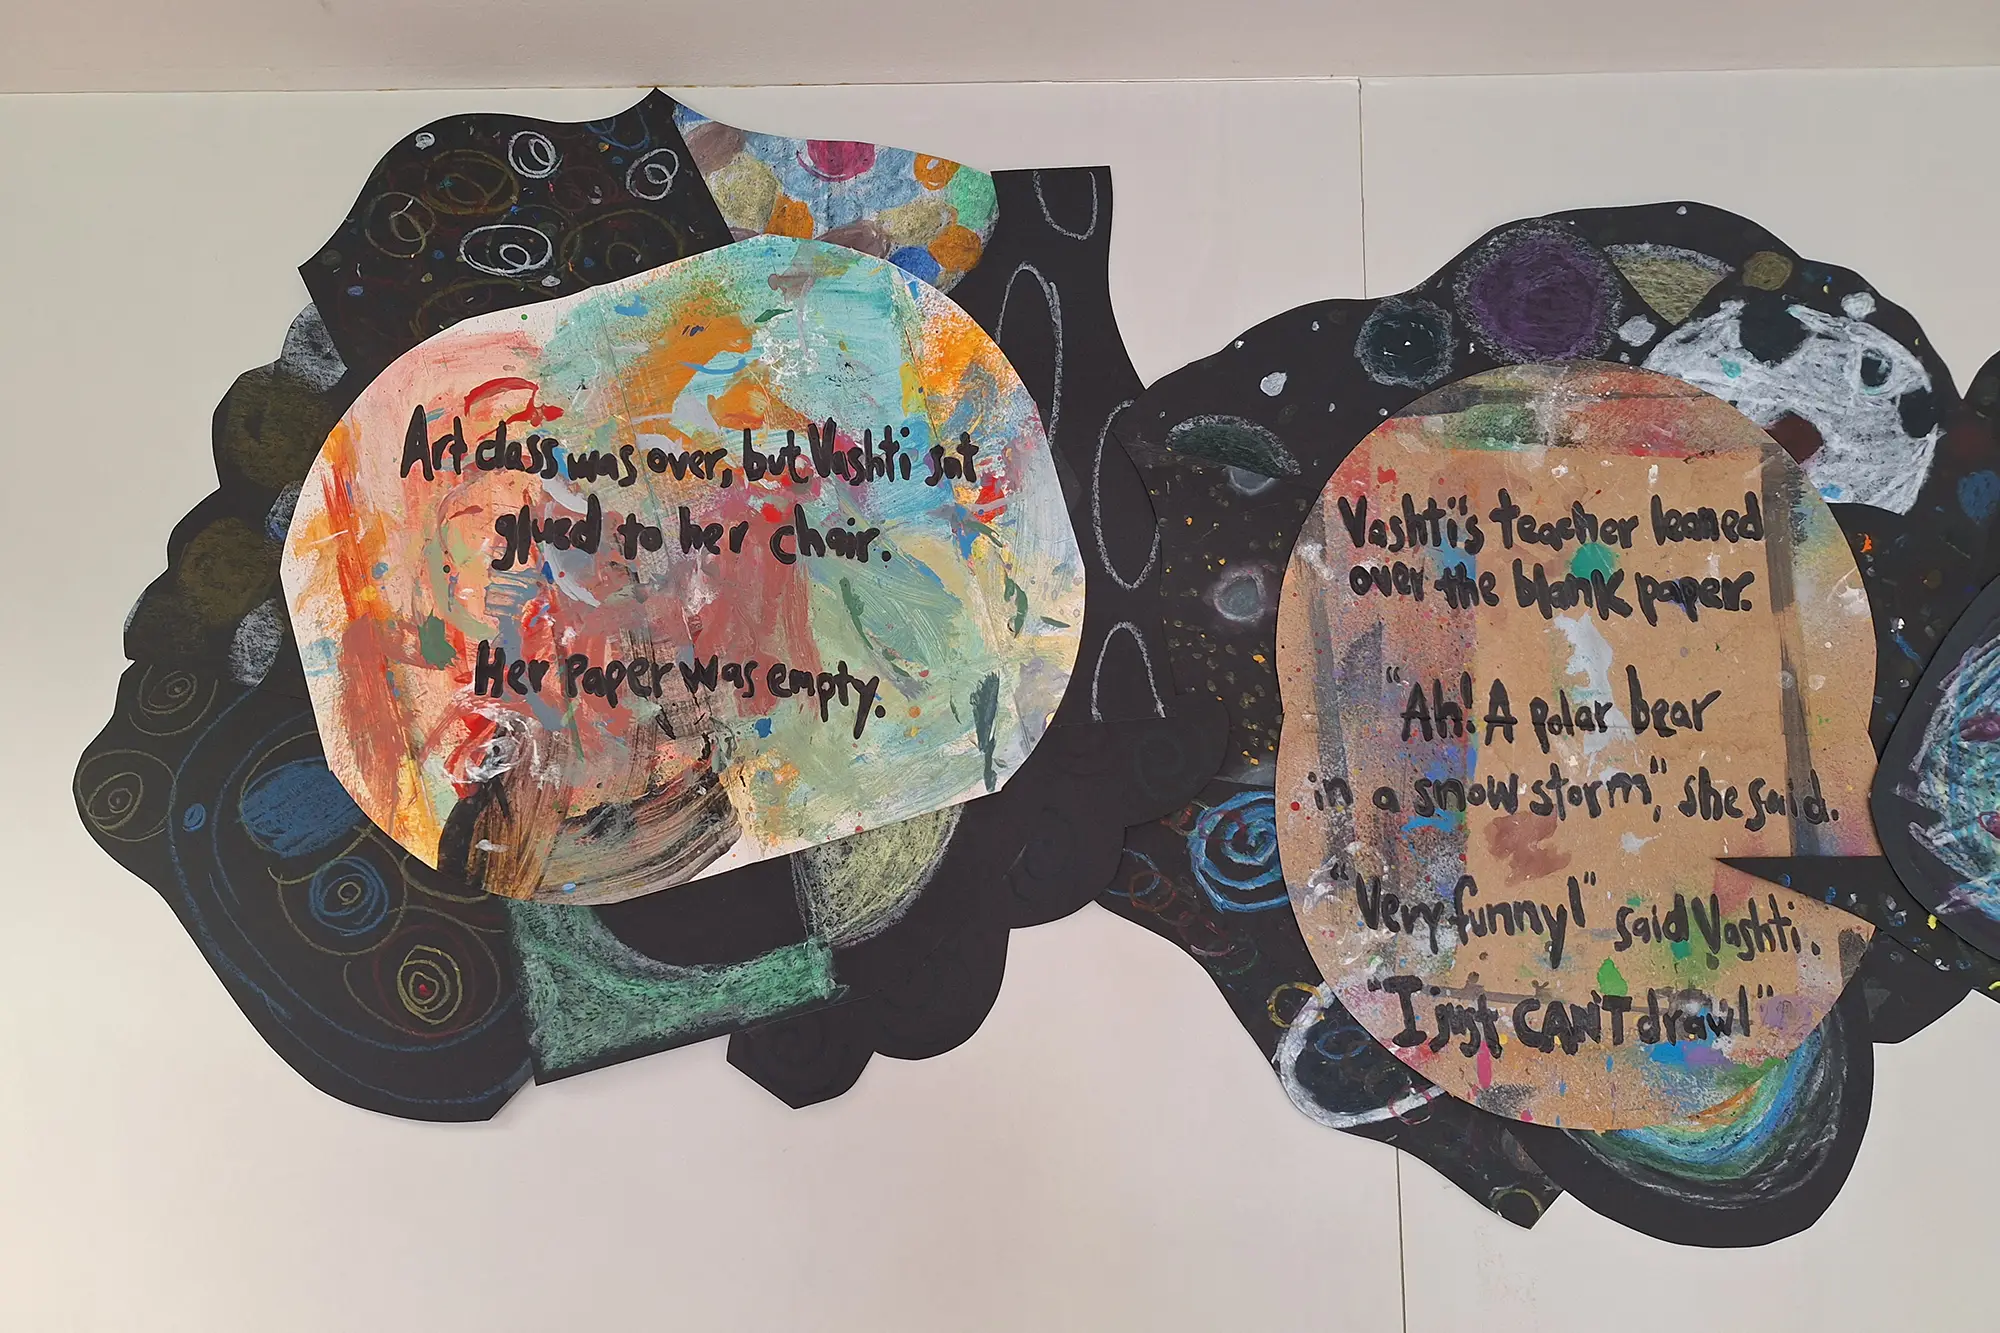 Art class was over, but Vashti sat
glued to her chair.
Her paper was empty.
Vashti's teacher leaned
over the blank paper.
"Ah! A polar bear
in a snow storm," she said.
"Very funny!" said Vashti.
"I just CAN'T draw!"